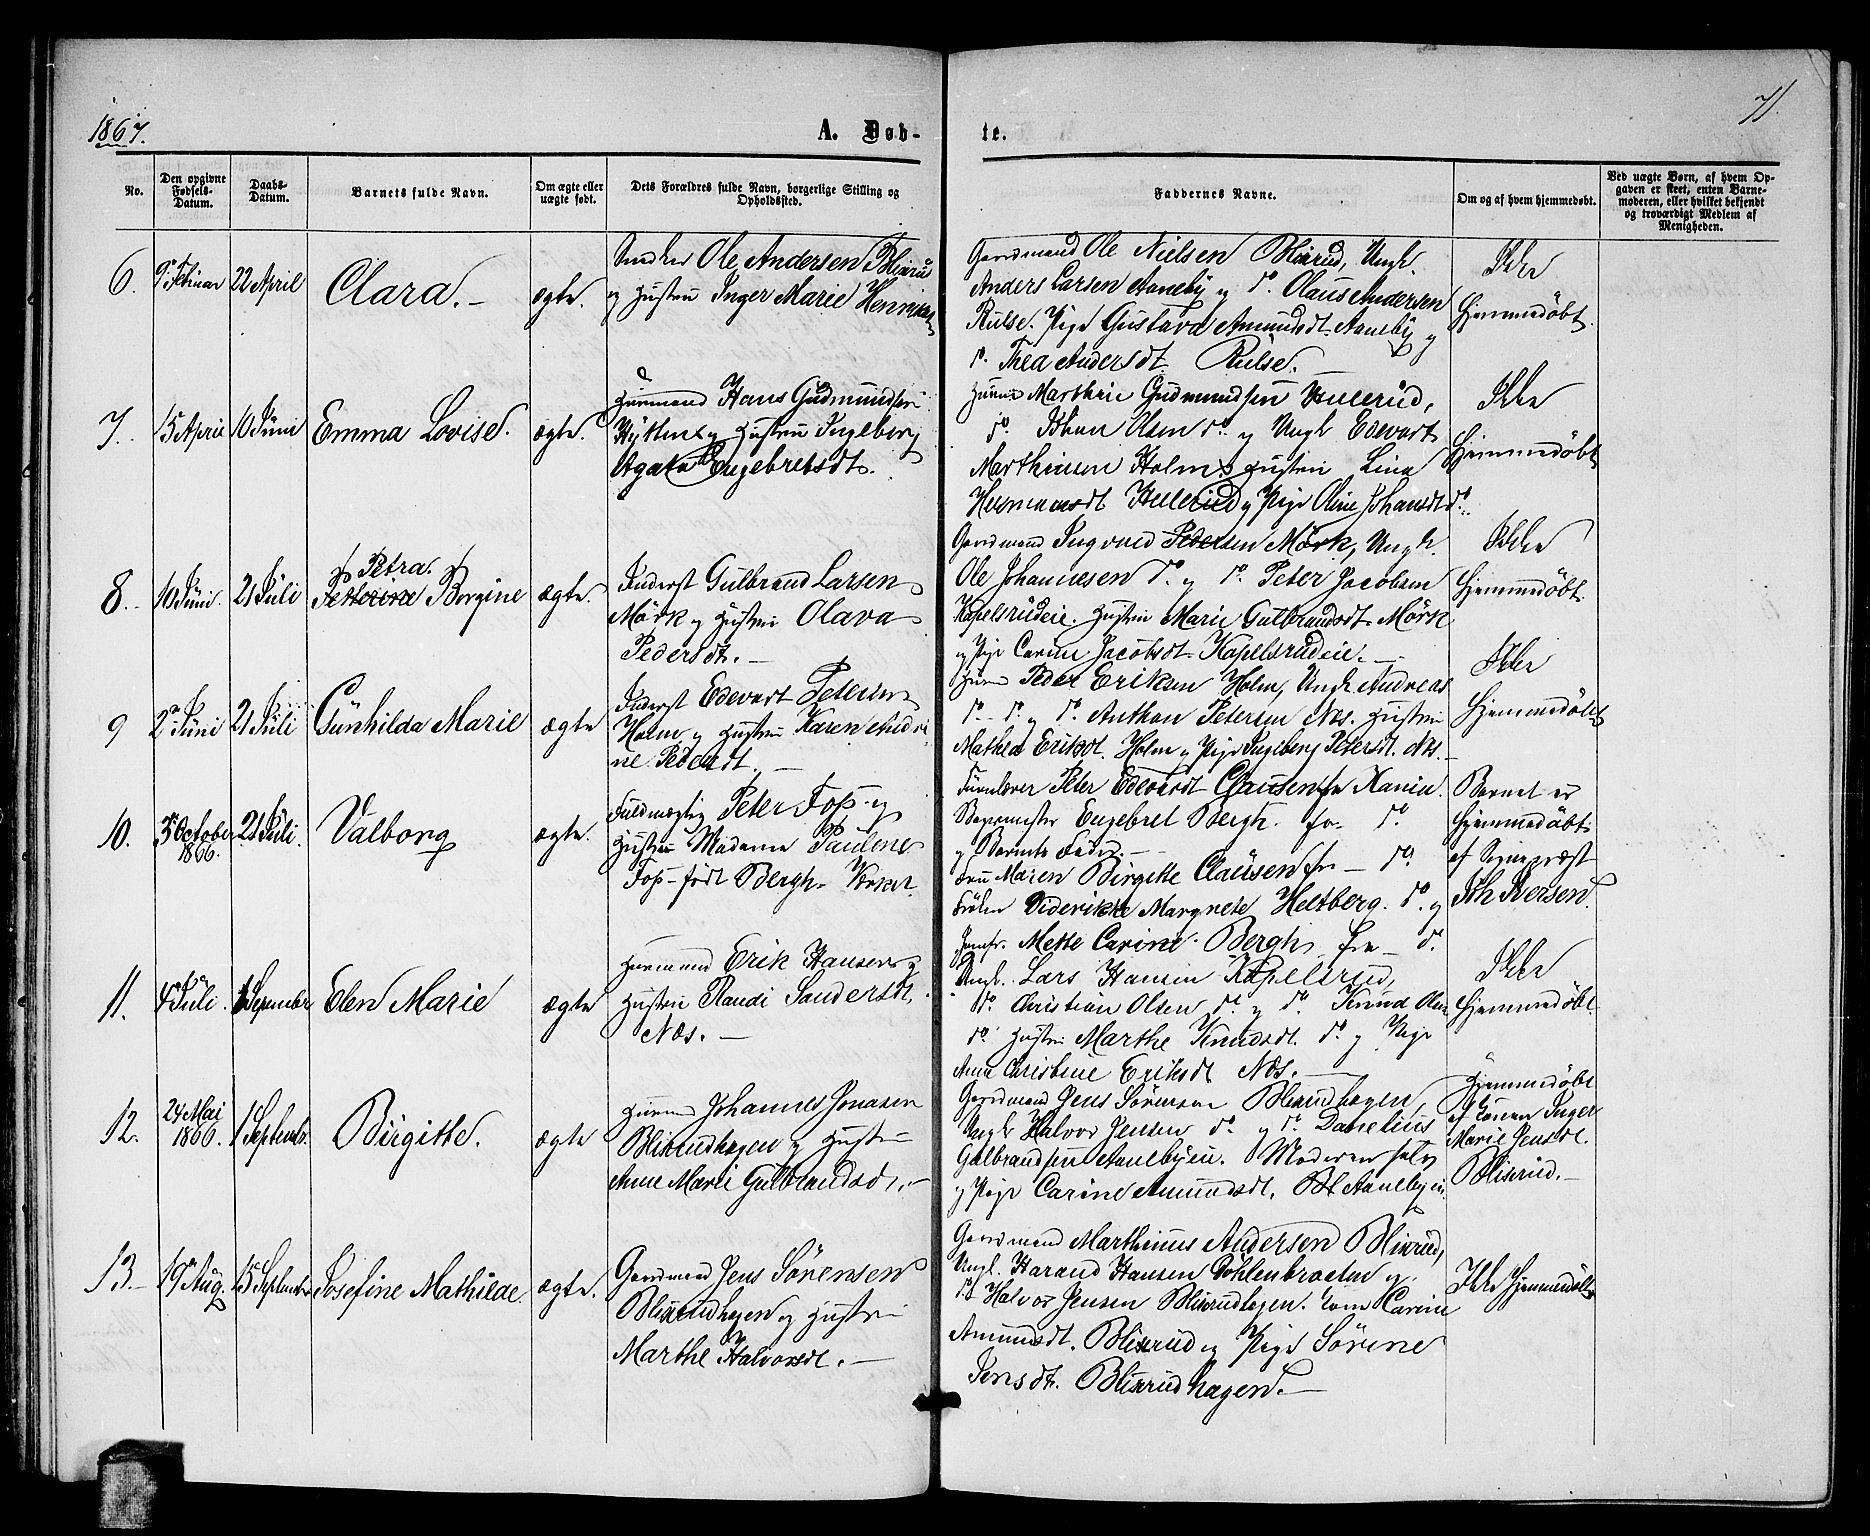 1867.
A. Døb-
No.
Den opgivne Fødsels-Datum.
Daabs-Datum.
Barnets fulde Navn.
Om ægte eller uægte født.
Dets Forældres fulde Navn, borgerlige Stilling og Opholdssted.
6.
9 Februar
22 April
Clara. –
ægte.
Ole Andersen Blixrud
og Hustru Inger Marie
7.
15 April
10 Juni
Emma Lovise.
ægte.
Huusmand Hans Gudmundsen
og Hustru Ingeborg
Agata Engebretsdt.
8.
10 Juni.
21 Juli
Petra.
Petterine Borgine
ægte.
Inderst Gulbrand Larsen
Mørk og Hustru Olava
Pedersdt. –
9
2 Juni
21 Juli
Gunhilda Marie
ægte
Inderst Edevart Petersen
Holm og Hustru Karen Andri-
ne Pedersdt. –
10.
3 October
1866.
21 Juli.
Valborg
ægte.
Fuldmægtig Peter Foss og
Hustru Madame Paulene
Foss født Bergh –
11.
4 Juli.
1 September
Elen Marie
ægte
Huusmand Erik Hansen og
Hustru Randi Sandersdt.
Næs. –
12.
24 Mai
1866.
1 Septembr.
Birgitte.
ægte
Huusmd Johannes Jonasen
Blixrudhagen og Hustru
Anne Marie Gulbrandsdt. –
13. –
19 Aug.
15 September
Josefine Mathilde.
ægte.
Gaardmand Jens Sørensen
Blixrudhagen og Hustru
Marthe Halvorsdt. –
71.
te.
Faddernes Navne.
Om og af hvem hjemmedøbt.
Ved uægte Børn, af hvem Op-
gaven er skeet, enten Barne-
moderen, eller hvilket bekjendt
og troværdigt Medlem af
Menigheden.
Gaardmand Ole Nielsen Blixrud, Ungk.
Anders Larsen Aaneby og do. Olaus Andersen
Rulse. Pige Gustava Amundsdt. Aaneby og
do. Thea Andersdt. Rulse. –
Ikke
Hjemmedøbt.
Gudmundsen
do. Johan Olsen do. og Ungk Edevart
Marthinsen Holm. Hustru Lina
Hermansdt og Pige Oline Johansdt do.
Ikke
Hjemmedøbt
Gaardmand Ingvald Pedersen Mørk, Ungk.
Ole Johannesen do. og do. Peter Jacobsen
Kapelsrudeie. Hustru Marie Gulbrandsdt. Mørk
og Pige Carine Jacobsdt. Kapelsrudeie. –
Ikke
Hjemmedøbt.
Huusmd Peder Eriksen Holm, Ungk. Andreas
do. – do. og do. Anthon Petersen Næs. Hustru
Mathea Eriksdt. Holm og Pige Ingeborg Petersdt. Næs. –
Ikke
Hjemmedøbt
Peter Edevardt Clausen fra
Engebret Bergh. fra do.
og Barnets Fader. –
Fru Maren Birgitte Clausen fra – do.
Frøken Diderikke Margrete Heltberg. do. og
Jomfr. Mette Carine Bergh fra – do.
Barnet er
Hjemmedøbt
af Sognepræst
Iversen.
Ungk. Lars Hansen Kapelsrud,
do. Christian Olsen do. og do. Knud Olsen
do. Hustru Marthe Knudsdt. do. og Pige
Anne Christine Eriksdt Næs. –
Ikke
Hjemmedøbt.
Gaardmand Jens Sørensen Blixrudhagen,
Ungk Halvor Jensen do. og do. Danelius
Gulbrandsen Aanebyeie. Moderen selv
og Pige Carine Amundsdt. Aanebyeie
Hjemmedøbt
af Konen Inger
Marie Jensdt.
Blixrud. –
Gaardmand Marthinus Andersen Blixrud,
Ungk. Harald Hansen og
do. Halvor Jensen Blixrudhagen. Kone Carine
Amundsdt. Blixrud og Pige Sørine
Jensdt. Blixrudhagen. –
Ikke Hjemmedøbt